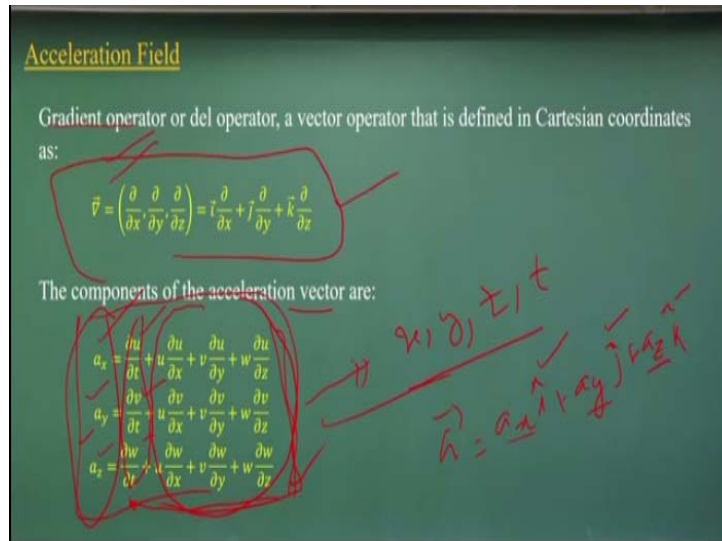 Acceleration Field
Gradient operator or del operator, a vector operator that is defined in Cartesian coordinates
as:
∇⃗ = (∂/∂x, ∂/∂y, ∂/∂z) = i⃗ ∂/∂x + j⃗ ∂/∂y + k⃗ ∂/∂z
The components of the acceleration vector are:
aₓ = ∂u/∂t + u ∂u/∂x + v ∂u/∂y + w ∂u/∂z
a_y = ∂v/∂t + u ∂v/∂x + v ∂v/∂y + w ∂v/∂z
a_z = ∂w/∂t + u ∂w/∂x + v ∂w/∂y + w ∂w/∂z
x, y, z, t
a⃗ = aₓ î + a_y ĵ + a_z k̂